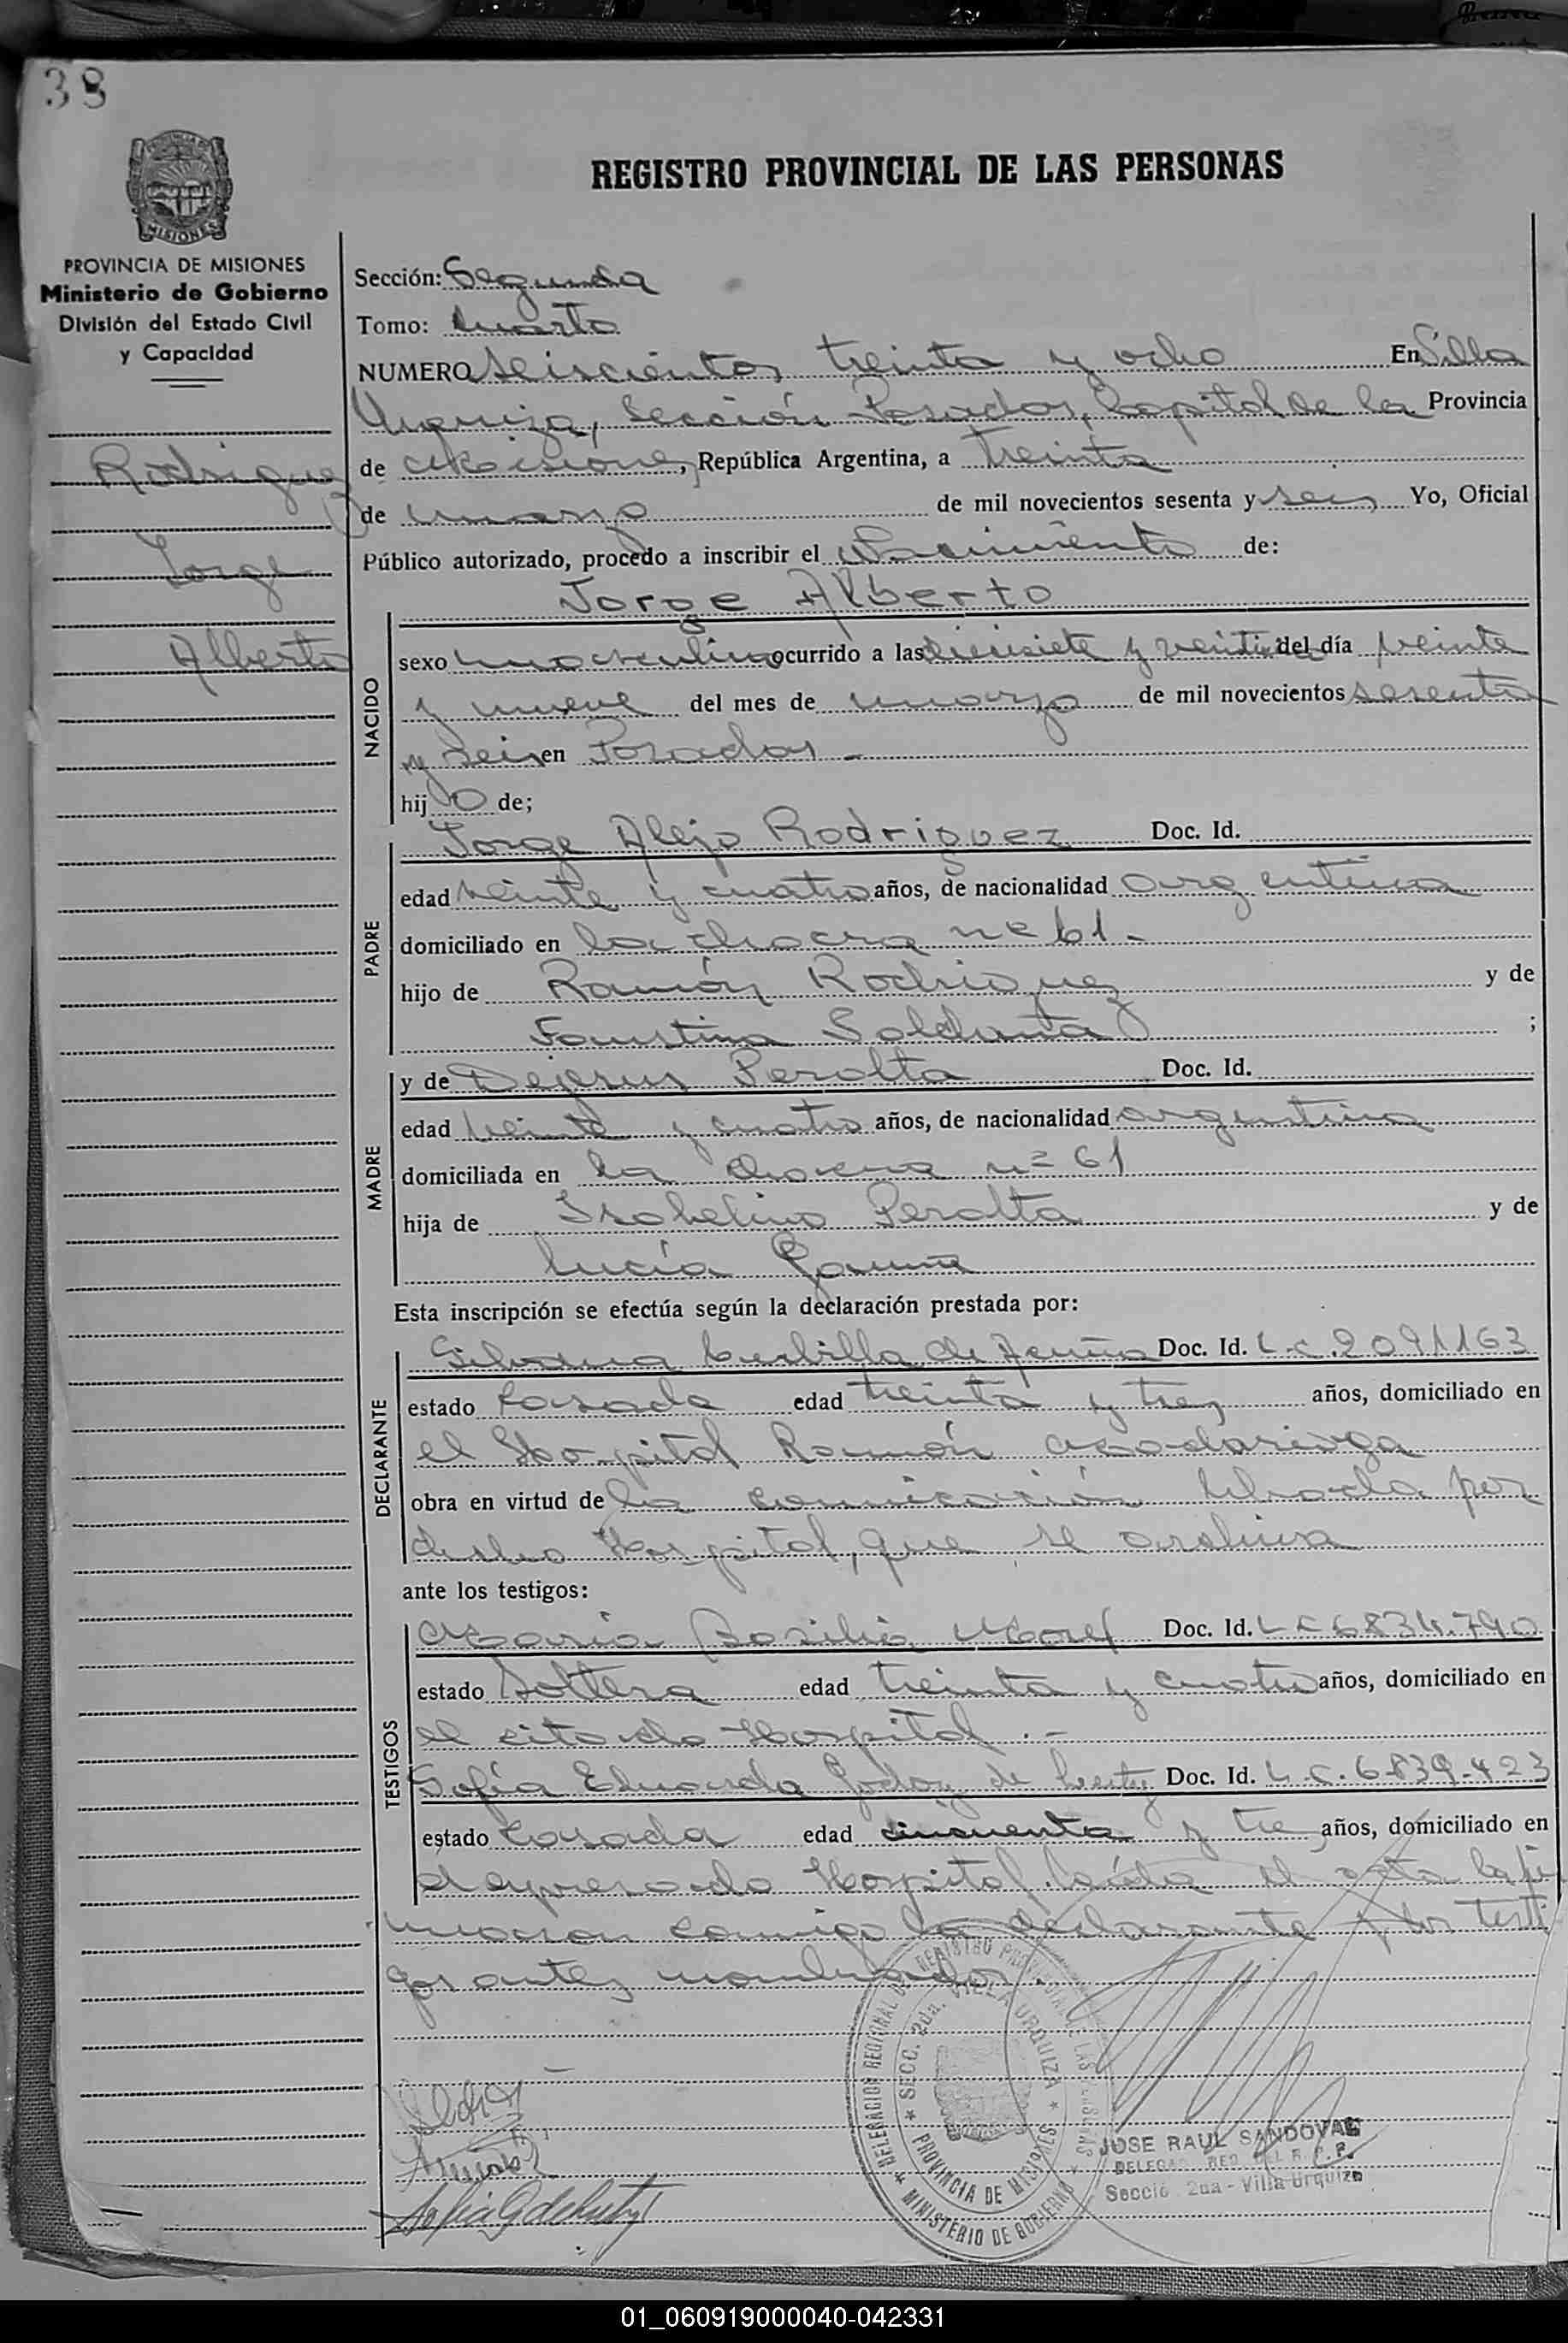 38
REGISTRO PROVINCIAL DE LAS PERSONAS
MISIONES
PROVINCIA DE MISIONES
Ministerio de Gobierno
División del Estado Civil
y Capacidad
Rodriguez
Jorge
Alberto
Sección: Segunda
Tomo: Cuarto
NUMERO Seiscientos treinta y ocho En Villa
Urquiza, Sección Posadas, Capital de la Provincia
de Misiones, República Argentina, a treinta
de marzo de mil novecientos sesenta y seis Yo, Oficial
Público autorizado, procedo a inscribir el Nacimiento de:
Jorge Alberto
NACIDO
sexo masculino ocurrido a las diecisiete y veinte del día veinte
y nueve del mes de marzo de mil novecientos sesenta
y seis en Posadas.-
hijo de;
PADRE
Jorge Alejo Rodriguez Doc. Id.
edad veinte y cuatro años, de nacionalidad argentina
domiciliado en la chacra nº 61.-
hijo de Ramón Rodriguez y de
Faustina ;
MADRE
y de Dejesus Peralta Doc. Id.
edad veinte y cuatro años, de nacionalidad argentina
domiciliada en la chacra nº 61
hija de Isabelino Peralta y de
Lucía
Esta inscripción se efectúa según la declaración prestada por:
DECLARANTE
de Doc. Id. L.C. 2091163
estado Casada edad treinta y tres años, domiciliado en
el Hospital Ramón Madariaga
obra en virtud de la comunicación librada por
dicho Hospital, que se archiva
ante los testigos:
TESTIGOS
María Basilia Doc. Id. L C 6834.790
estado Soltera edad treinta y cuatro años, domiciliado en
el citado Hospital.-
Sofía Eduarda Godoy de Doc. Id. L.C. 6.839.423
estado Casada edad cincuenta y tres años, domiciliado en
el expresado Hospital. Leída el acta la fir
maron conmigo la declarante y los testi
gos antes nombrados.
DELEGACION REGIONAL DEL REGISTRO PROVINCIAL DE LAS PERSONAS
SECC. 2da. VILLA URQUIZA
PROVINCIA DE MISIONES
MINISTERIO DE GOBIERNO
JOSE RAUL SANDOVAL
DELEGADO REG. DEL R. P. P.
Secció 2da - Villa Urquiza
01_060919000040-042331